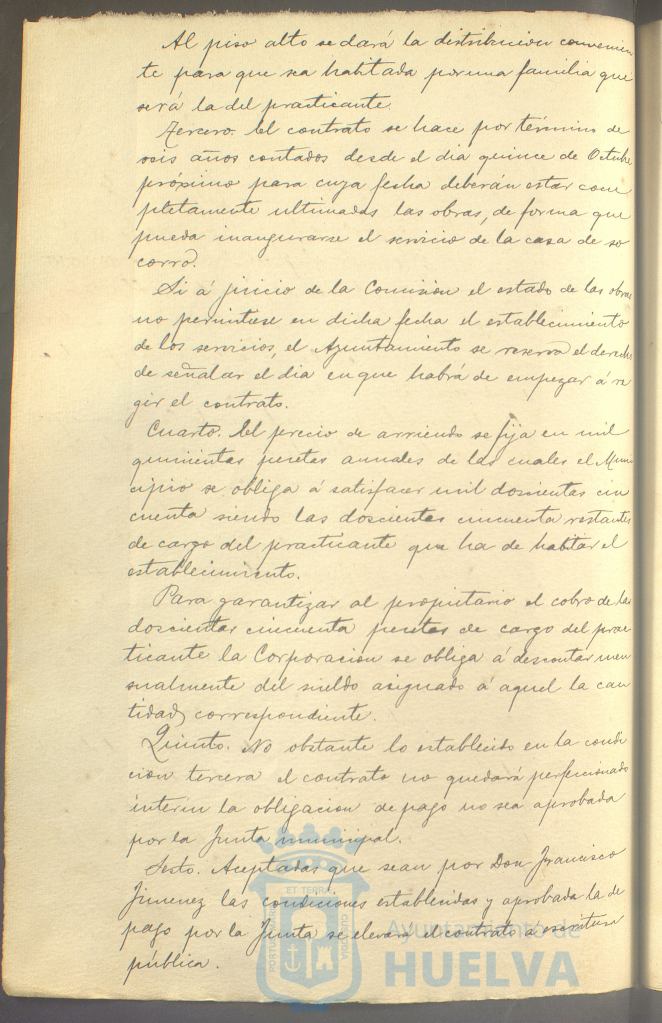 Al piso alto se dará la distribucion convenien
te para que sea habitada por una familia que
será la del practicante.
Tercero. El contrato se hace por término de
seis años contados desde el dia quince de Octubre
próximo para cuya fecha deberán estar com
pletamente ultimadas las obras, de forma que
pueda inaugurarse el servicio de la casa de so
corro.
Si á juicio de la Comision el estado de las obras
no permitiese en dicha fecha el establecimiento
de los servicios, el Ayuntamiento se reserva el derecho
de señalar el dia en que habrá de empezar á re
gir el contrato.
Cuarto. El precio de arriendo se fija en mil
quinientas pesetas anuales de las cuales el Muni
cipio se obliga á satisfacer mil doscientas cin
cuenta siendo las doscientas cincuenta restantes
de cargo del practicante que ha de habitar el
establecimiento.
Para garantizar al propietario el cobro de las
doscientas cincuenta pesetas de cargo del prac
ticante la Corporacion se obliga á descontar men
sualmente del sueldo asignado á aquel la can
tidad correspondiente.
Quinto. No obstante lo establecido en la condi
cion tercera el contrato no quedará perfeccionado
interin la obligacion de pago no sea aprobada
por la Junta municipal.
Sesto. Aceptadas que sean por Don Francisco
Jimenez las condiciones establecidas y aprobada la de
pago por la Junta se elevará el contrato á escritura
pública.
ET TERRAE
PORTUS MARIS
CUSTODIA
Ayuntamiento de
HUELVA